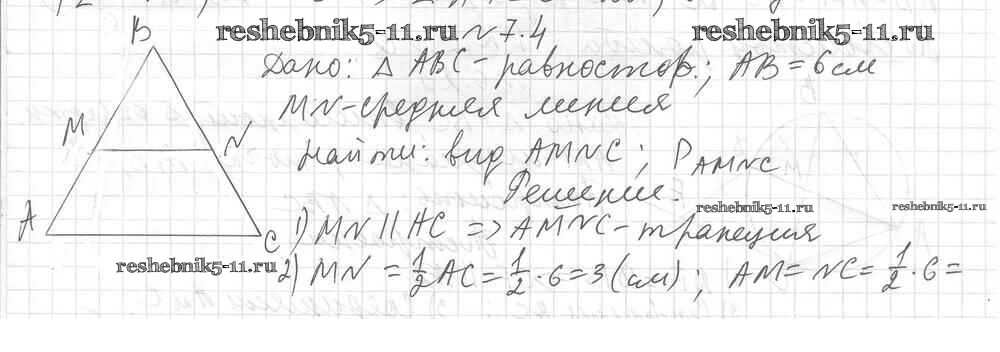 reshebnik5-11.ru №7.4 reshebnik5-11.ru
B
Дано: △ ABC - равностор.; AB = 6 см
MN - средняя линия
M
N
Найти: вид AMNC; P AMNC
Решение.
reshebnik5-11.ru reshebnik5-11.ru
A
C
1) MN || AC => AMNC - трапеция
reshebnik5-11.ru
2) MN = 1/2 AC = 1/2 · 6 = 3 (см); AM = NC = 1/2 · 6 =